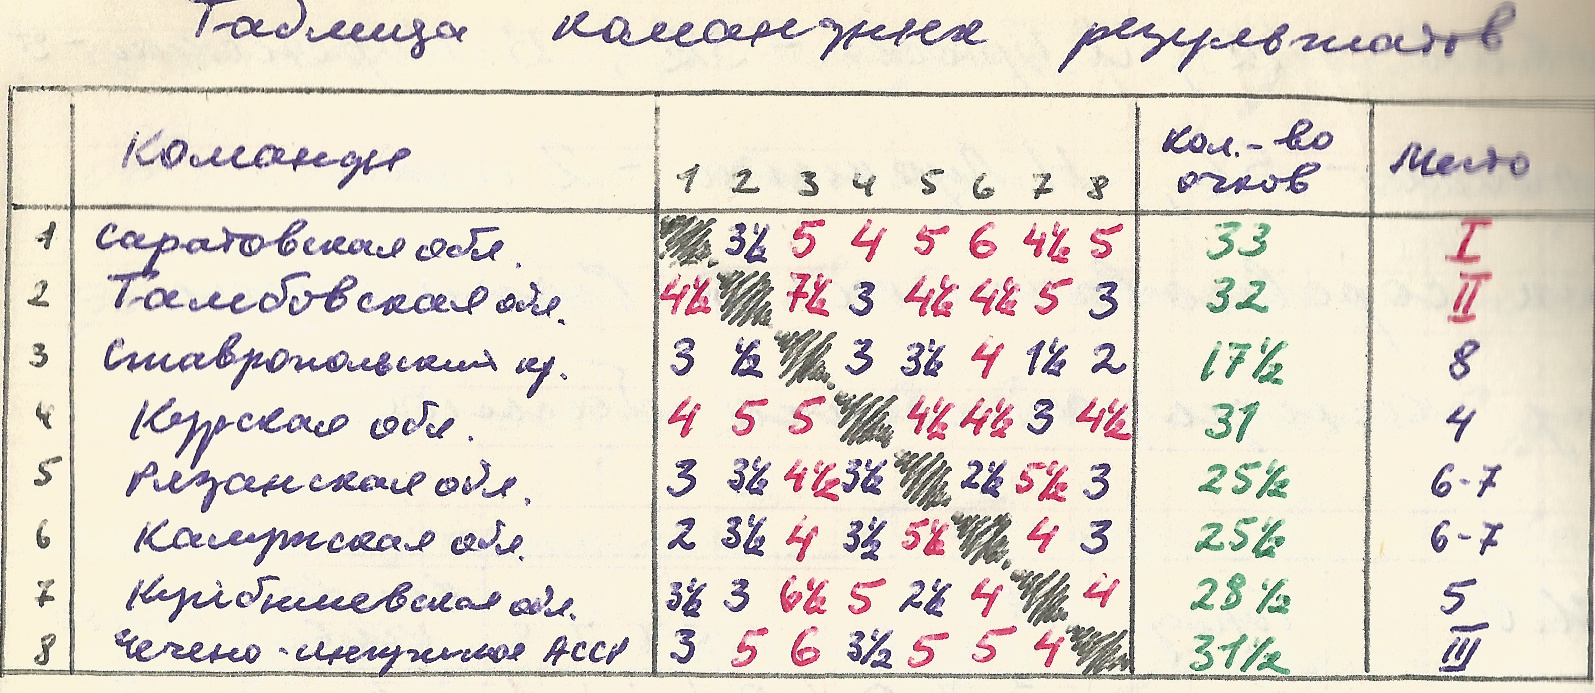 Таблица командных результатов
Команды 1 2 3 4 5 6 7 8 Кол.-во очков Место
1 Саратовская обл. 3½ 5 4 5 6 4½ 5 33 I
2 Тамбовская обл. 4½ 7½ 3 4½ 4½ 5 3 32 II
3 Ставропольский кр. 3 ½ 3 3½ 4 1½ 2 17½ 8
4 Курская обл. 4 5 5 4½ 4½ 3 4½ 31 4
5 Рязанская обл. 3 3½ 4½ 3½ 2½ 5½ 3 25½ 6-7
6 Калужская обл. 2 3½ 4 3½ 5½ 4 3 25½ 6-7
7 Куйбышевская обл. 3½ 3 6½ 5 2½ 4 4 28½ 5
8 Чечено-Ингушская АССР 3 5 6 3½ 5 5 4 31½ III